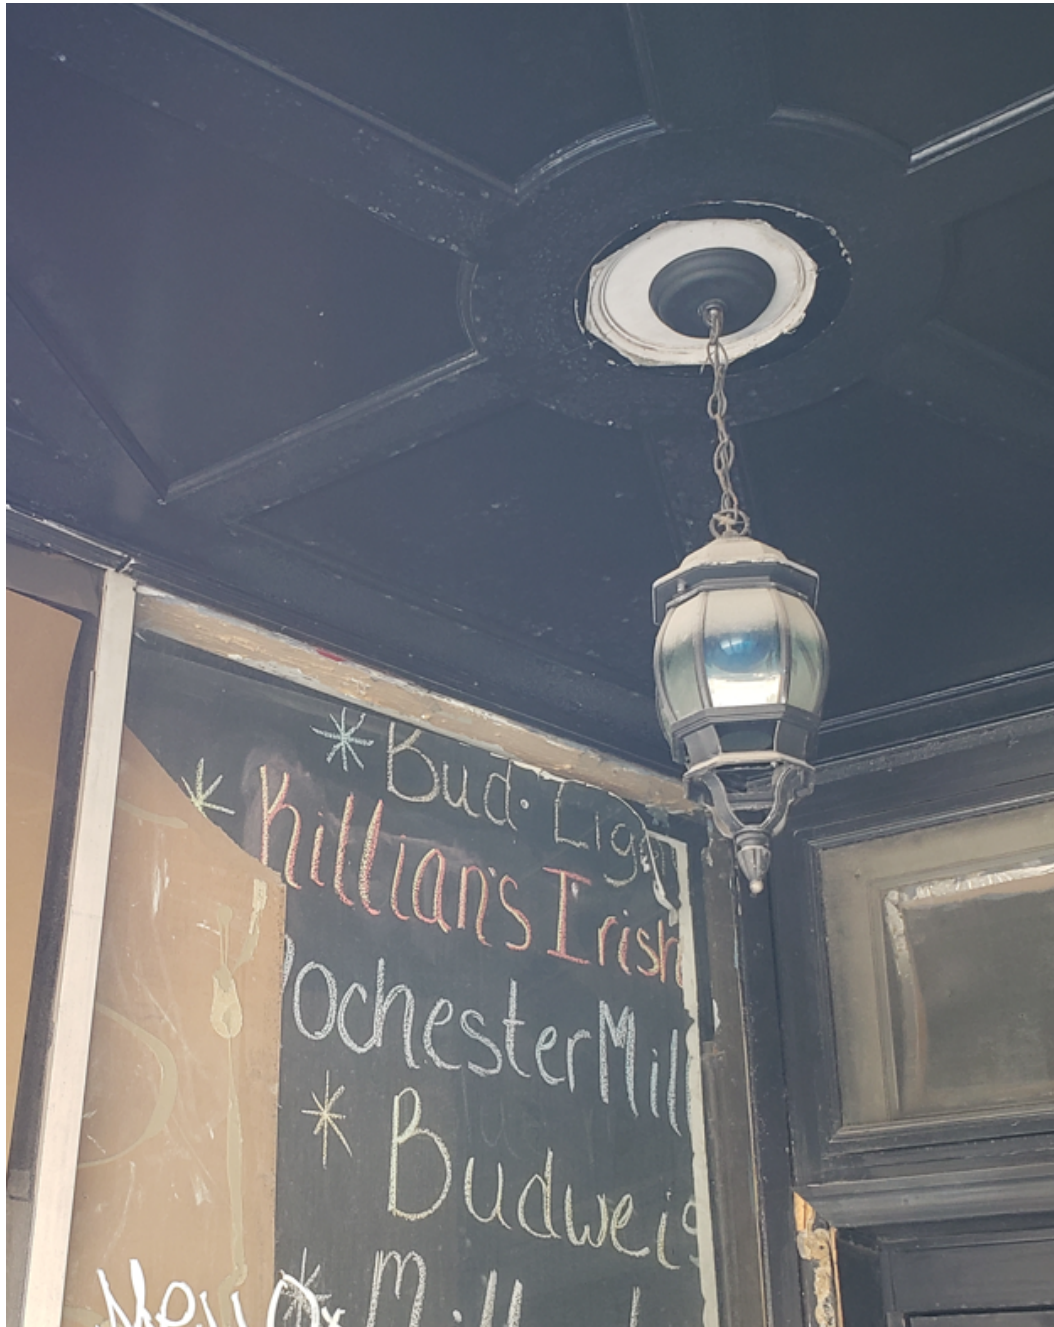 * Bud Light
* Killian's Irish
ochester Mill
* Budweis
* Mill